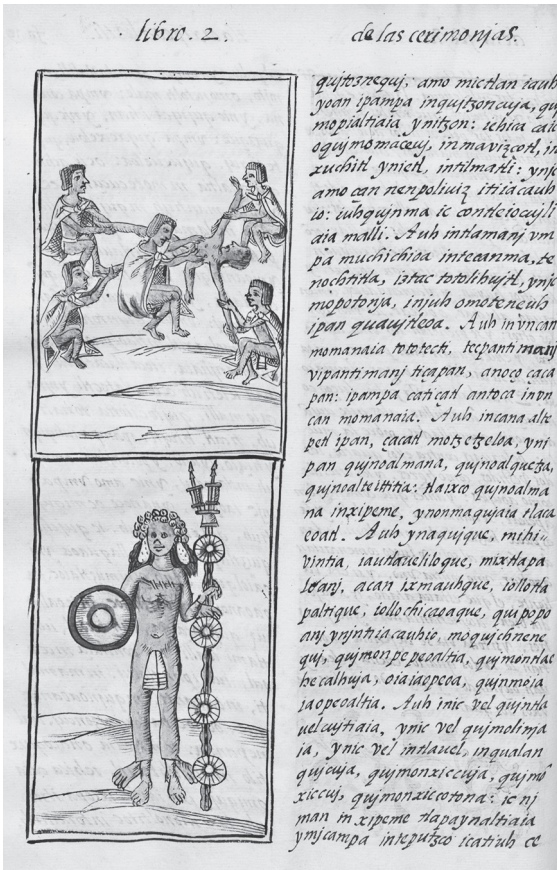 libro. 2.
de las cerimonjas.
qujtoznequj, amo mictlan iauh
yoan ipampa inqujtzoncuja, qu
mopialtiaia ynjtzon: ichica cauh
oqujmomaceuj, in mavizçotl, in
xuchitl ynietl, intilmatli: ynjc
amo çan nenpoliviz itiiacauh
io: iuhqujnma ic contleiocujli
aia malli. Auh intlamanj vm
pa muchichioa intecanma, te
nochtitla, iztac totolihujtl, ynjc
mopotonja, injuh omoteneuh
ipan quaujtleoa. Auh in vncan
momanaia tototecti, tecpantimanj
vipantimanj tiçapan, anoço çaca
pan: ipampa caticatl antoca invn
can momanaia. Auh incana alte
petl ipan, çacatl motzetzeloa, ynj
pan qujnoalmana, qujnoalquetza,
qujnoalteittitia: tlaixco qujnoalma
na inxipeme, ynonmaqujaia tlaca
coatl. Auh ynaqujque, mihi-
vintia, iautlaueliloque, mixtlapa
loanj, acan ixmauhque, iollotla
paltique, iollochicaoaque, qujpopo
anj ynjntiacauhio, moqujchnene
quj, qujmonpepeoaltia, qujmontlae
hecalhuja, oiaiaopeoa, qujnmoia
iaopeoaltia. Auh inic vel qujntla
uelcujtiaia, ynic vel qujmolinja
ia, ynic vel intlauel, inqualan
qujcuja, qujmonxiccuja, qujmo
xiccuj, qujmonxiccotona: ic nj
man in xipeme tlapaynaltiaia
ynjcampa inteputzco icatiuh ce